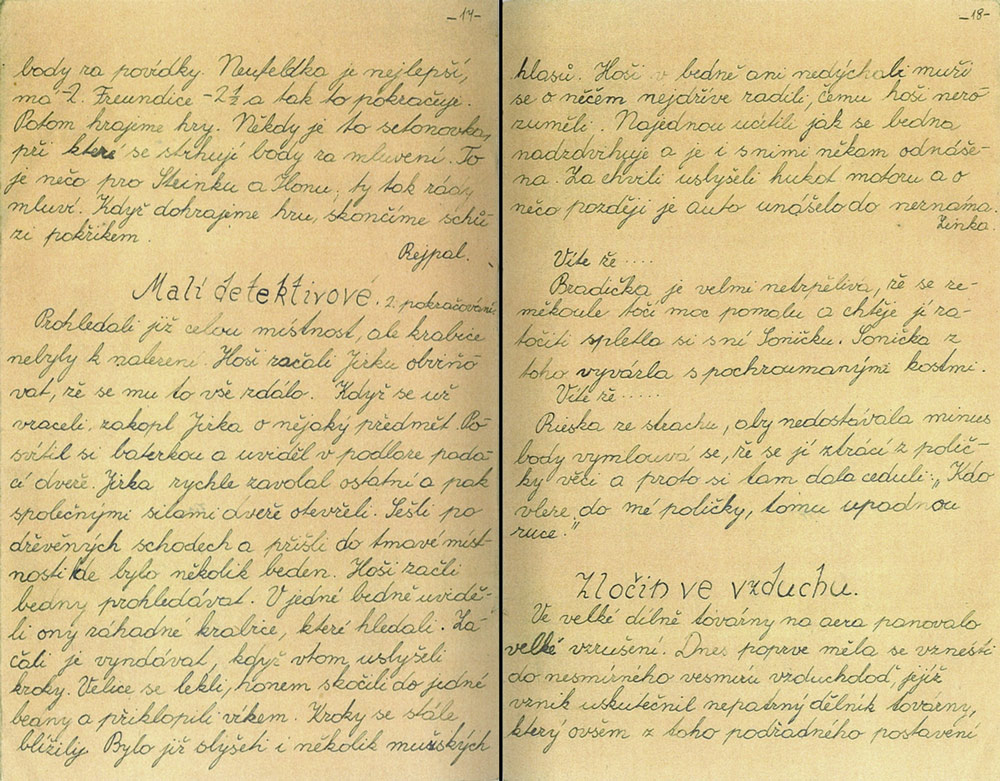 -17-
body za povídky. Neufeldka je nejlepší,
má -2. Freundice -2½ a tak to pokračuje.
Potom hrajeme hry. Někdy je to setonovka,
při které se strhují body za mluvení. To
je něco pro Steinku a Ilonu, ty tak rády
mluví. Když dohrajeme hru, skončíme schů-
zi pokřikem.
Rejpal.
Malí detektivové. 2. pokračování
Prohledali již celou místnost, ale krabice
nebyly k nalezení. Hoši začali Jirku obviňo
vat, že se mu to vše zdálo. Když se už
vraceli, zakopl Jirka o nějaký předmět. Po-
svítil si baterkou a uviděl v podloze pada-
cí dveře. Jirka rychle zavolal ostatní a pak
společnými silami dveře otevřeli. Sešli po
dřevěných schodech a přišli do tmavé míst-
nosti kde bylo několik beden. Hoši začli
bedny prohledávat. V jedné bedně uvidě-
li ony záhadné krabice, které hledali. Za-
čali je vyndávat, když vtom uslyšeli
kroky. Velice se lekli, honem skočili do jedné
bedny a přiklopili víkem. Kroky se stále
blížily. Bylo již slyšeti i několik mužských
-18-
hlasů. Hoši v bedně ani nedýchali muži
se o něčem nejdříve radili, čemu hoši nero
zuměli. Najednou ucítili jak se bedna
nadzdvihuje a je i s nimi někam odnáše-
na. Za chvíli uslyšeli hukot motoru a o
něco později je auto unášelo do neznáma.
Zinka.
Víte že ....
Bradička je velmi netrpělivá, že se ze-
měkoule točí moc pomalu a chtěje jí za-
točiti spletla si s ní Soničku. Sonička z
toho vyvázla s pochroumanými kostmi.
Víte že .....
Rieska ze strachu, aby nedostávala minus
body vymlouvá se, že se jí ztrácí z polič-
ky věci a proto si tam dala ceduli: „Kdo
vleze do mé poličky, tomu upadnou
ruce."
Zločin ve vzduchu.
Ve velké dílně továrny na aera panovalo
velké vzrušení. Dnes poprve měla se vznésti
do nesmírného vesmíru vzducholoď, jejíž
vznik uskutečnil nepatrný dělník továrny,
který ovšem z toho podřadného postavení